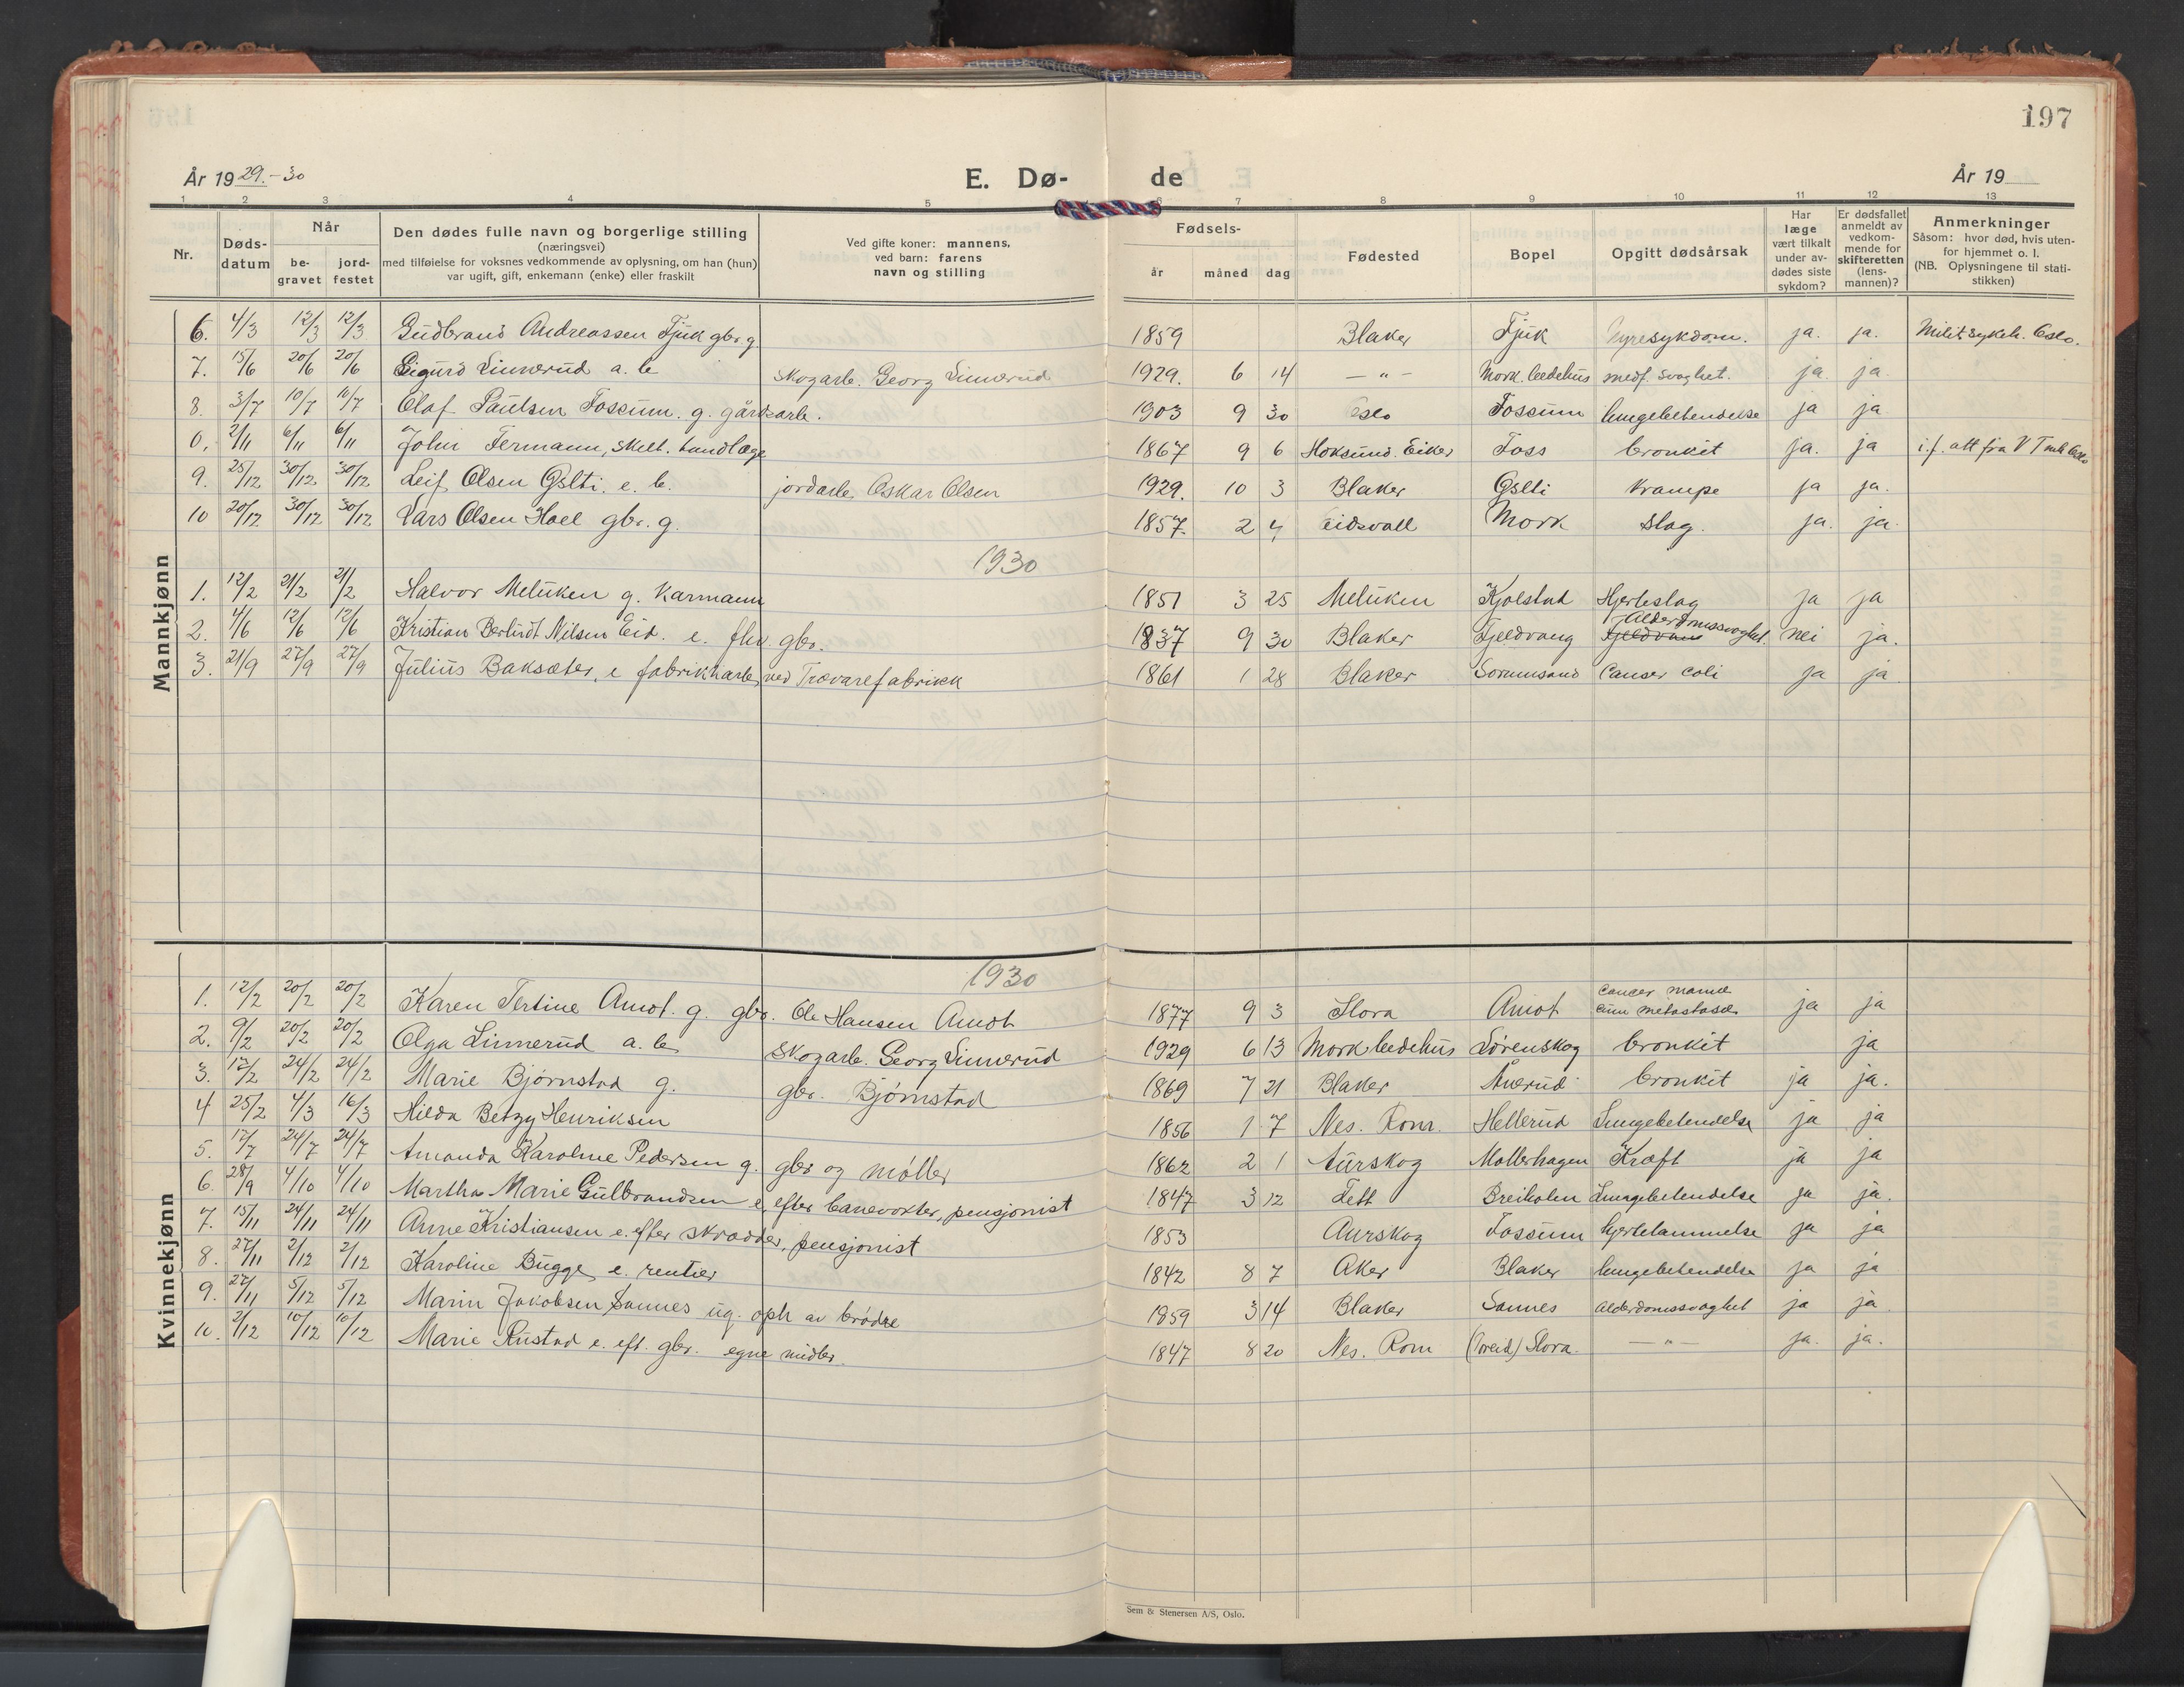 197
År 19 29.-30
E. Dø- de
År 19
1 2 3 4 5 6 7 8 9 10 11 12 13
Nr.
Døds-
datum
Når
be-
gravet
jord-
festet
Den dødes fulle navn og borgerlige stilling
(næringsvei)
med tilføielse for voksnes vedkommende av oplysning, om han (hun)
var ugift, gift, enkemann (enke) eller fraskilt
Ved gifte koner: mannens,
ved barn: farens
navn og stilling
Fødsels-
år måned dag
Fødested
Bopel
Opgitt dødsårsak
Har
læge
vært tilkalt
under av-
dødes siste
sykdom?
Er dødsfallet
anmeldt av
vedkom-
mende for
skifteretten
(lens-
mannen)?
Anmerkninger
Såsom: hvor død, hvis uten-
for hjemmet o. l.
(NB. Oplysningene til stati-
stikken)
Mannkjønn
6. 4/3 12/3 12/3 Gudbrand Andreassen Fjuk gbr. g. 1859 Blaker Fjuk Nyresykdom. ja. ja. Milit. sykeh. Oslo.
7. 15/6 20/6 20/6 Sigurd Linnerud a. b. skogarb. Georg Linnerud 1929. 6 14 — " — Mork bedehus medf. svaghet. ja. ja.
8. 3/7 10/7 10/7 Olaf Paulsen Fossum. g. gårdsarb. 1903 9 30 Oslo Fossum lungebetendelse ja ja
0. 2/11 6/11 6/11 John Fermann, skilt. tandlæge 1867 9 6 Hoksund. Eiker Foss bronkit ja. ja i.f. att fra V
9. 25/12 30/12 30/12 Leif Olsen Østli. e. b. jordarb. Oskar Olsen 1929. 10 3 Blaker Østli krampe ja ja.
10 20/12 30/12 30/12 Lars Olsen Hoel gbr. g. 1857. 2 4 Eidsvoll Mork slag. ja. ja.
1930
1. 12/2 21/2 21/2 Halvor Meluken g. Karmann 1851 3 25 Meluken Kjolstad Hjerteslag ja ja
2. 4/6 12/6 12/6 Kristian Berlindt Nilsen Eid. e. fhv. gbr. 1837 9 30 Blaker Fjeldvang Fjeldvang Alderdomssvaghet. nei ja.
3. 21/9 27/9 27/9 Julius Baksæter, e fabrikkarb. ved Trævarefabrikk 1861 1 28 Blaker Sorumsand Canser coli ja ja
Kvinnekjønn
1930
1. 12/2 20/2 20/2 Karen Tertine Amot. g. gbr. Ole Hansen Amot 1877 9 3 Slora Amot cancer mamae cum metastaser ja ja
2. 9/2 20/2 20/2 Olga Linnerud a. b. skogarb. Georg Linnerud 1929 6 13 Mork bedehus Lørenskog bronkit ja
3. 17/2 24/2 24/2 Marie Bjørnstad g. gbr. Bjørnstad 1869 7 21 Blaker Åserud bronkit ja ja.
4 25/2 4/3 16/3 Hilda Betzy Henriksen 1856 1 7 Nes. Romr. Hellerud Lungebetendelse ja ja
5. 17/7 24/7 24/7 Amanda Karoline Pedersen g. gbr og møller 1862 2 1 Aurskog Mollerhagen Kræft ja ja
6. 28/9 4/10 4/10 Martha Marie Gulbrandsen e. efter banevokter, pensjonist 1847 3 12 Fett Breiholen Lungebetendelse ja ja.
7. 15/11 24/11 24/11 Anne Kristiansen e. efter skrædder, pensjonist 1853 Aurskog Fossum hjertelammelse ja ja
8. 27/11 2/12 2/12 Karoline Bugge, e. rentier 1842 8 7 Aker Blaker lungebetendelse ja ja
9. 27/11 5/12 5/12 Marin Jakobsen Sannes ug. oph av brødre 1859 3 14 Blaker Sannes alderdomssvaghet ja ja.
10. 2/12 10/12 10/12 Marie Rustad e. eft. gbr. egne midler. 1847 8 20 Nes. Rom (breid) Slora. — " — ja. ja.
Sem & Stenersen A/S, Oslo.